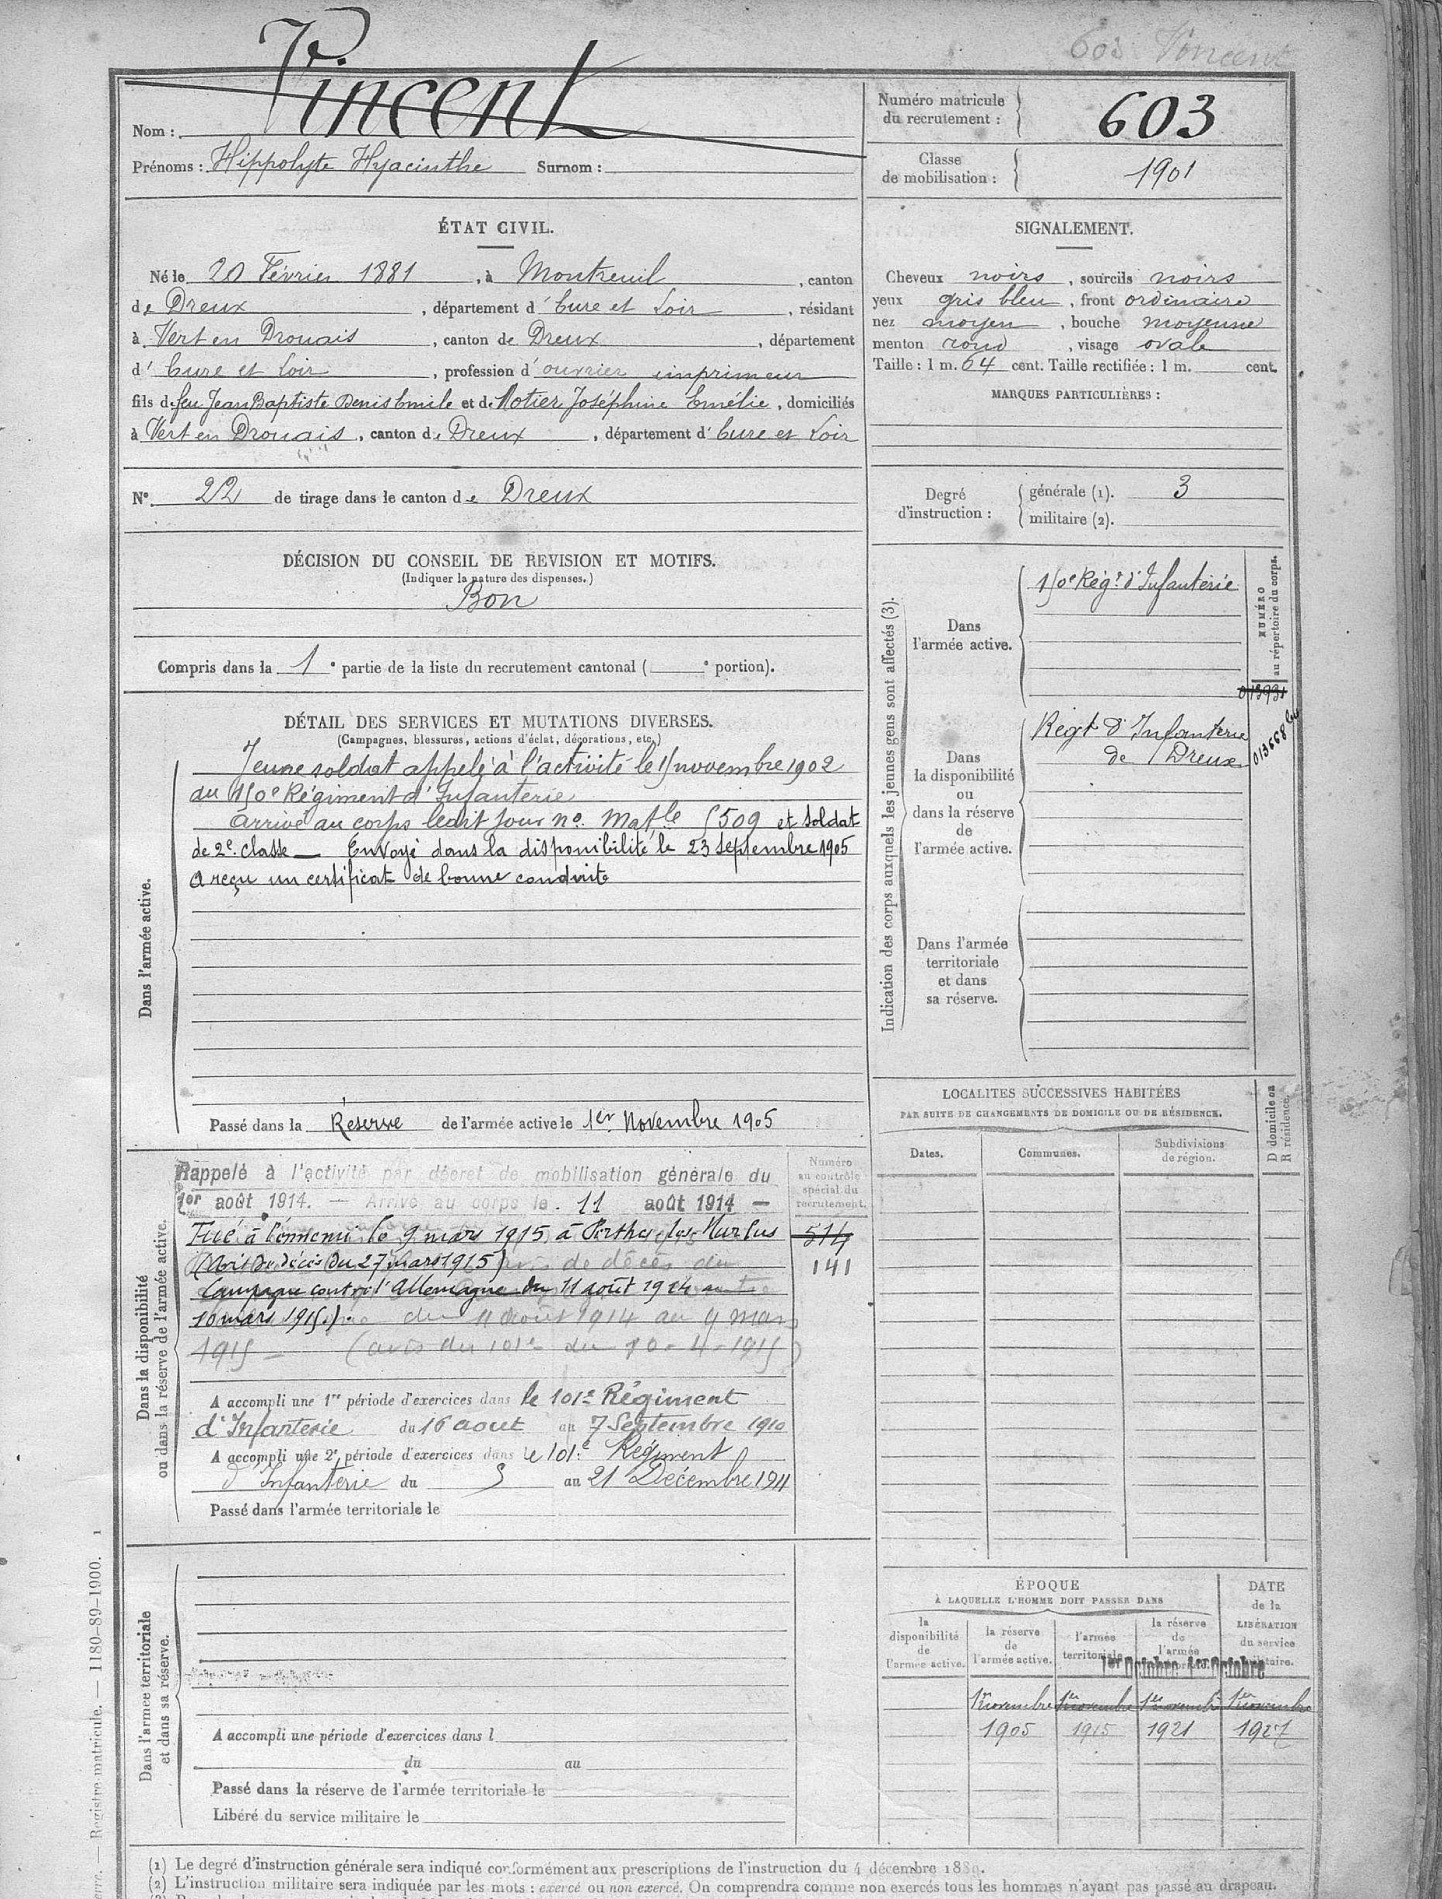 603 Vincent
Nom : Vincent
Prénoms : Hippolyte Hyacinthe Surnom :
Numéro matricule du recrutement : 603
Classe de mobilisation : 1901
ÉTAT CIVIL.
Né le 20 Février 1881, à Montreuil, canton
de Dreux, département d'Eure et Loir, résidant
à Vert en Drouais, canton de Dreux, département
d'Eure et Loir, profession d'ouvrier imprimeur
fils de feu Jean Baptiste Denis Emile et de Motier Joséphine Emélie, domiciliés
à Vert en Drouais, canton de Dreux, département d'Eure et Loir
N° 22 de tirage dans le canton de Dreux
SIGNALEMENT.
Cheveux noirs, sourcils noirs
yeux gris bleu, front ordinaire
nez moyen, bouche moyenne
menton rond, visage ovale
Taille : 1 m. 64 cent. Taille rectifiée : 1 m. cent.
MARQUES PARTICULIÈRES :
Degré d'instruction :
générale (1). 3
militaire (2).
DÉCISION DU CONSEIL DE REVISION ET MOTIFS.
(Indiquer la nature des dispenses.)
Bon
Compris dans la 1e partie de la liste du recrutement cantonal ( e portion).
DÉTAIL DES SERVICES ET MUTATIONS DIVERSES.
(Campagnes, blessures, actions d'éclat, décorations, etc.)
Dans l'armée active.
Jeune soldat appelé à l'activité le 15 novembre 1902
au 150e Régiment d'Infanterie
arrivé au corps ledit jour no. Matle 5509 et soldat
de 2e. classe — Envoyé dans la disponibilité le 23 Septembre 1905
a reçu un certificat de bonne conduite
Passé dans la Réserve de l'armée active le 1er Novembre 1905
Dans la disponibilité
ou dans la réserve de l'armée active.
Numéro
au contrôle
spécial du
recrutement.
Rappelé à l'activité par décret de mobilisation générale du
1er août 1914. — Arrivé au corps le 11 août 1914 —
Tué à l'ennemi le 9 mars 1915 à Perthes les Hurlus
514
(Avis de décès du 27 mars 1915)
141
Campagne contre l'Allemagne du 11 août 1914 au
10 mars 1915). du 11 août 1914 au 9 mars
1915 — (avis du 101e du 10-4-1915)
A accompli une 1re période d'exercices dans le 101e Régiment
d'Infanterie du 16 aout au 7 Septembre 1910
A accompli une 2e période d'exercices dans le 101e Régiment
d'Infanterie du 5 au 21 Décembre 1911
Passé dans l'armée territoriale le
Dans l'armée territoriale
et dans sa réserve.
A accompli une période d'exercices dans l
du au
Passé dans la réserve de l'armée territoriale le
Libéré du service militaire le
Indication des corps auxquels les jeunes gens sont affectés (3).
NUMÉRO
au répertoire du corps.
Dans
l'armée active.
150e Régt d'Infanterie
Dans
la disponibilité
ou
dans la réserve
de
l'armée active.
Régt d'Infanterie
de Dreux
Dans l'armée
territoriale
et dans
sa réserve.
LOCALITES SUCCESSIVES HABITÉES
PAR SUITE DE CHANGEMENTS DE DOMICILE OU DE RÉSIDENCE.
D domicile ou
R résidence.
Dates. Communes. Subdivisions de région.
ÉPOQUE
À LAQUELLE L'HOMME DOIT PASSER DANS
DATE
de la
LIBÉRATION
du service
militaire.
la
disponibilité
de
l'armée active.
la réserve
de
l'armée active.
l'armée
territoriale
la réserve
de
l'armée
1er Octobre 1er Octobre
1er novembre 1er novembre 1er novembre 1er novembre
1905 1915 1921 1927
— Registre matricule. — 1180-89-1900. 1
(1) Le degré d'instruction générale sera indiqué conformément aux prescriptions de l'instruction du 4 décembre 1889.
(2) L'instruction militaire sera indiquée par les mots : exercé ou non exercé. On comprendra comme non exercés tous les hommes n'ayant pas passé au drapeau.